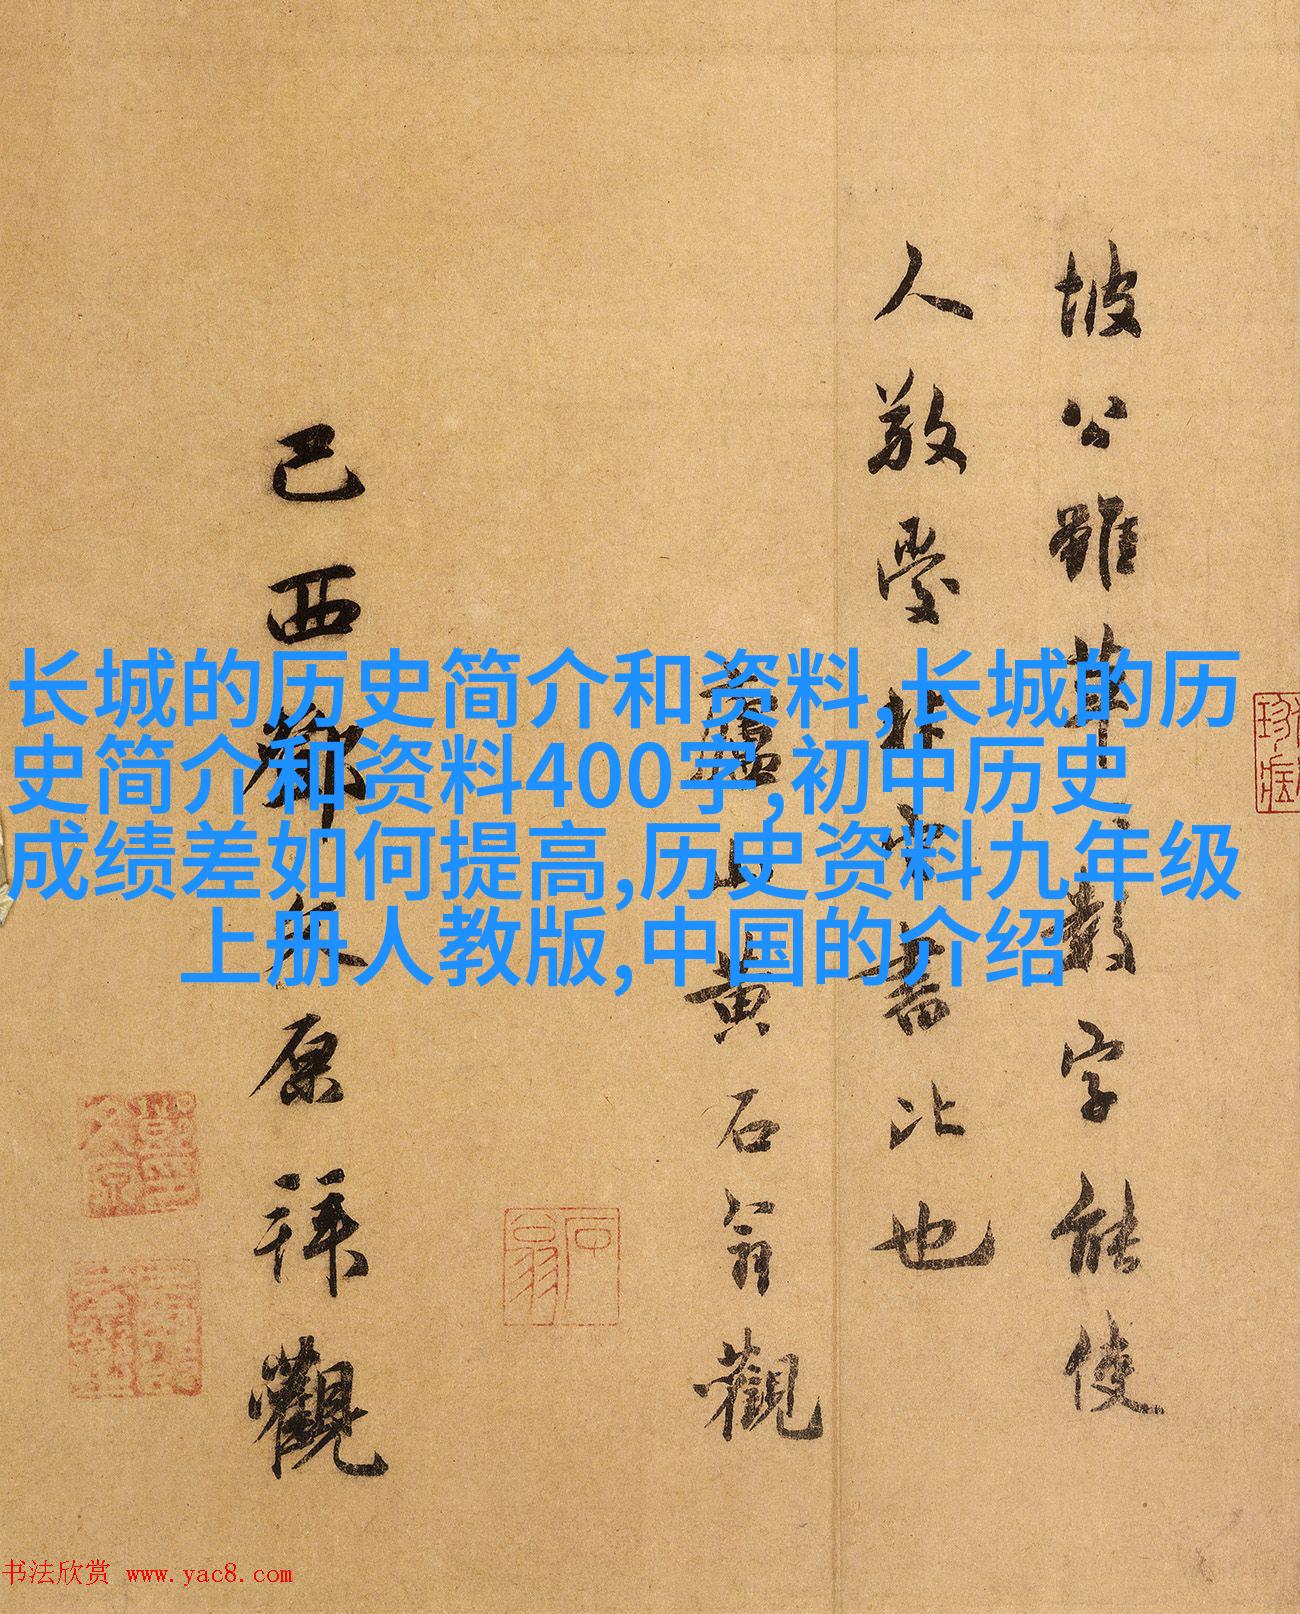 坡公雖草數字能使
人敬愛非書比也
廬山黄石翁觀
己酉鄭原拜觀
石翁
长城的历史简介和资料,长城的历
史简介和资料400字,初中历史
成绩差如何提高,历史资料九年级
上册人教版,中国的介绍
书法欣赏 www.yac8.com